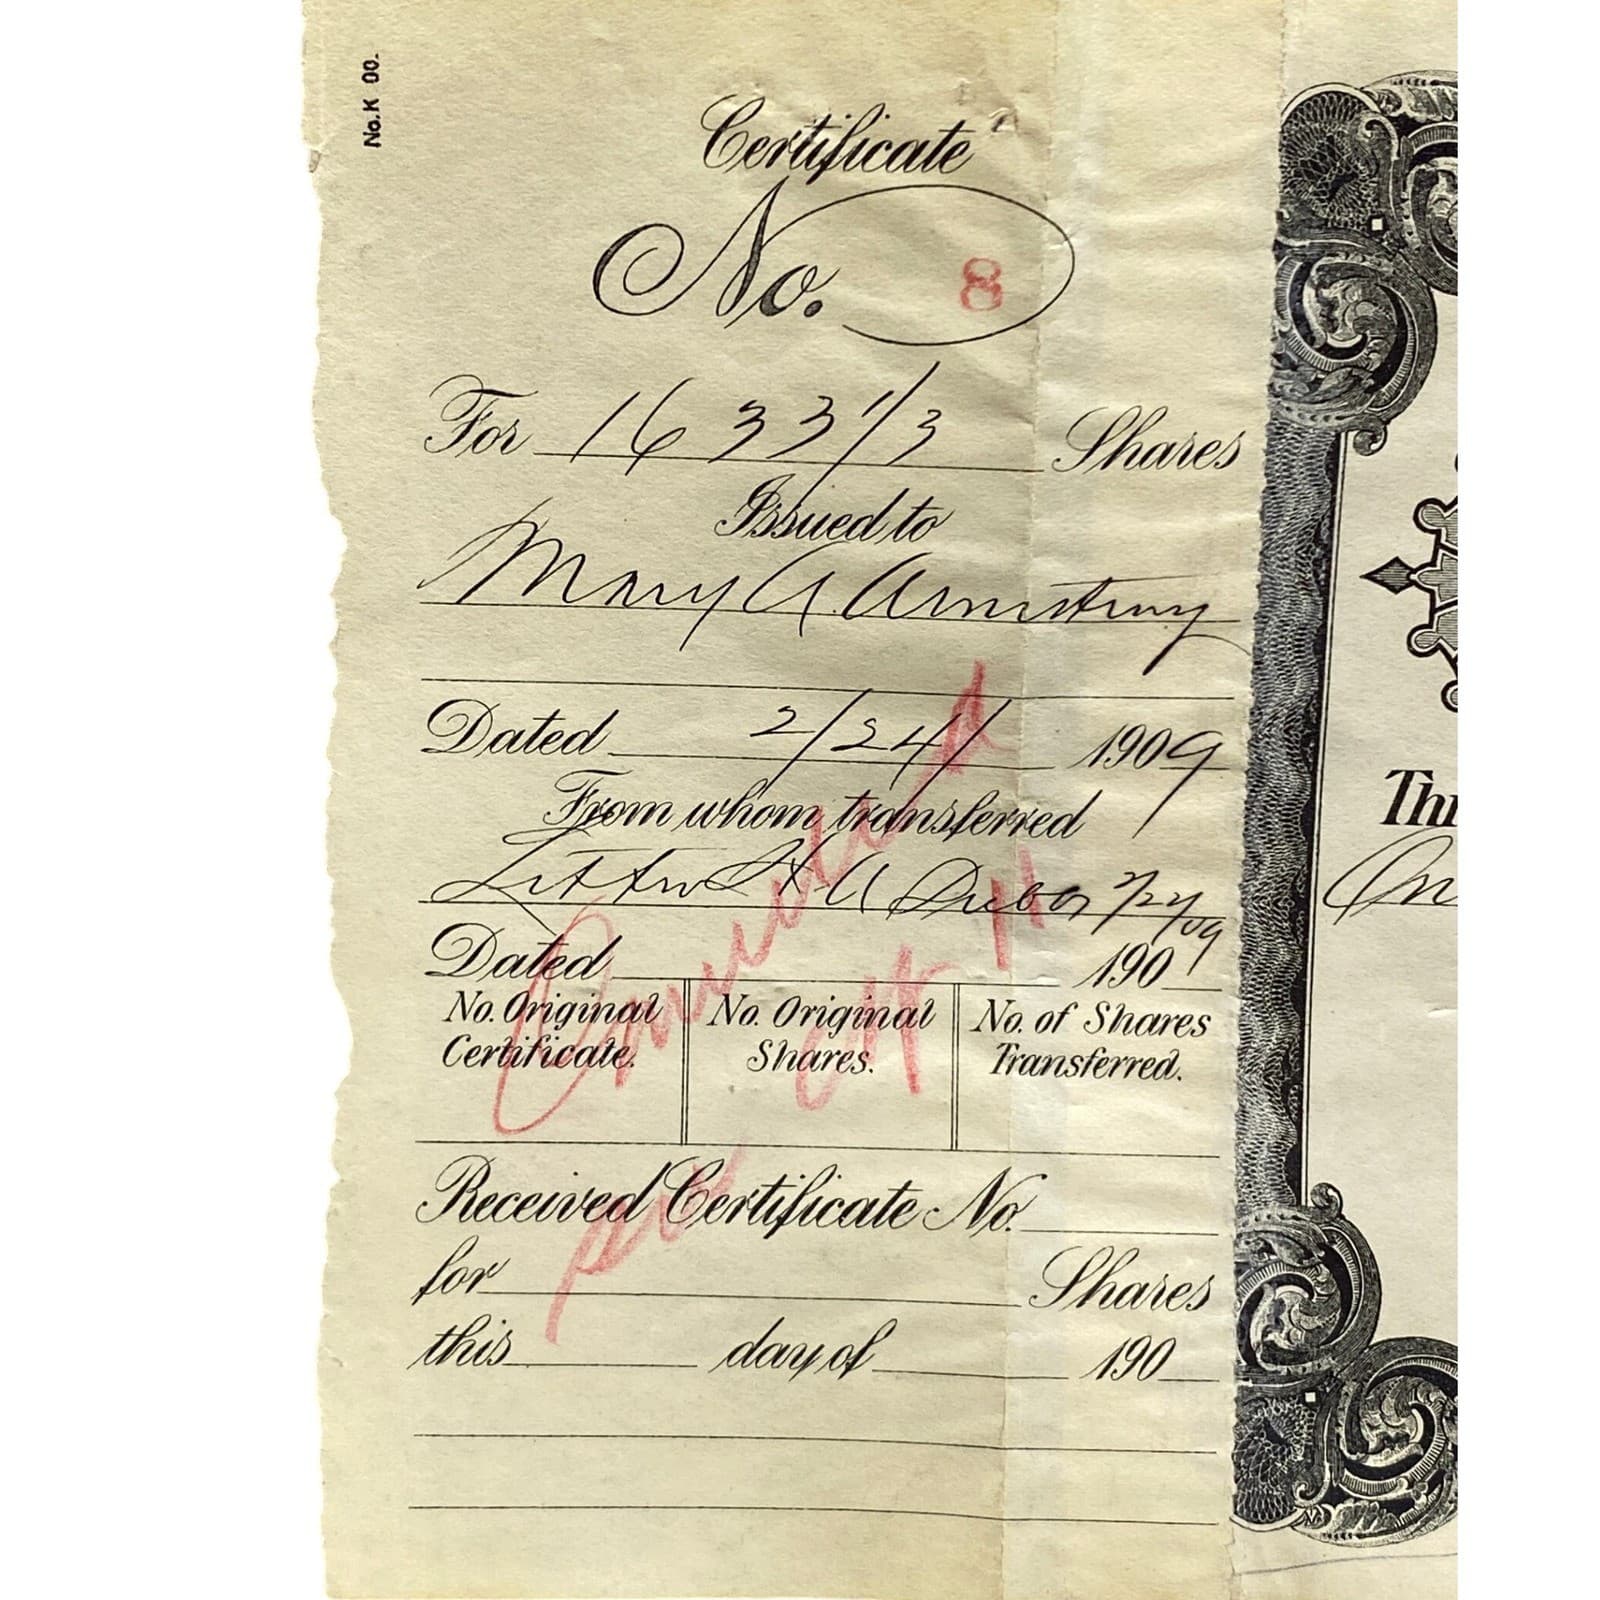 No. K 00.
Certificate
No. 8
For 1633 1/3 Shares
Issued to
Mary A. Armstrong
Dated 2/24/ 1909
From whom transferred
2/24/09
Dated 190
No. Original Certificate.
No. Original Shares.
No. of Shares Transferred.
Received Certificate No.
for Shares
this day of 190
Th
On